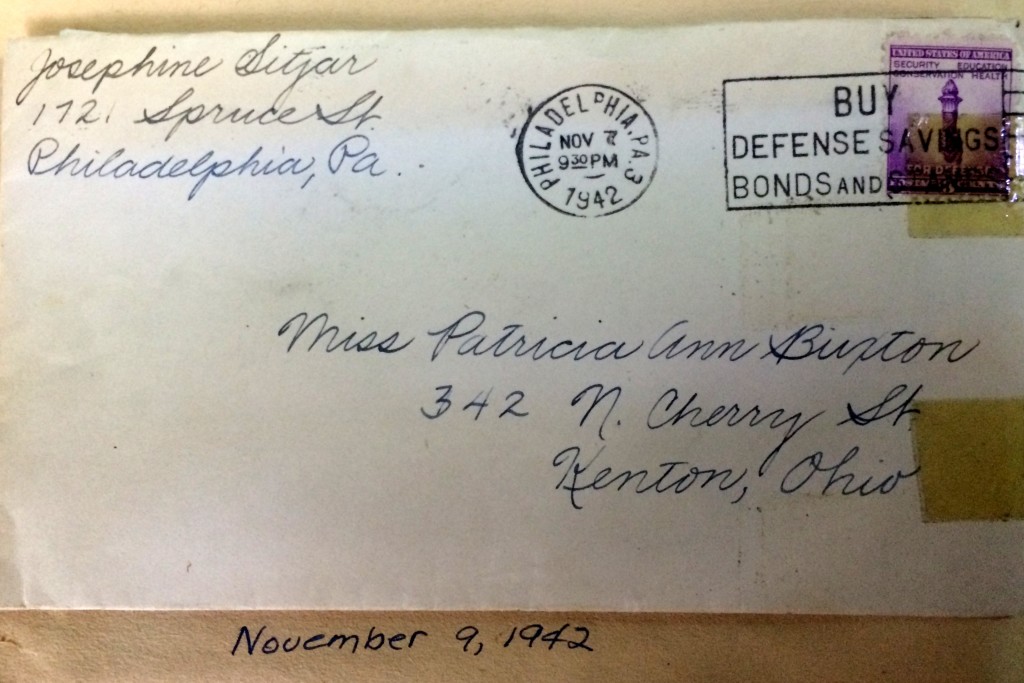 Josephine Sitjar
1721 Spruce St.
Philadelphia, Pa.
PHILADELPHIA, PA. 3
NOV
9 30 PM
1942
BUY
DEFENSE SAVINGS
BONDS AND
UNITED STATES OF AMERICA
SECURITY EDUCATION
CONSERVATION HEALTH
FOR DEFENSE
Miss Patricia Ann Buxton
342 N. Cherry St
Kenton, Ohio
November 9, 1942